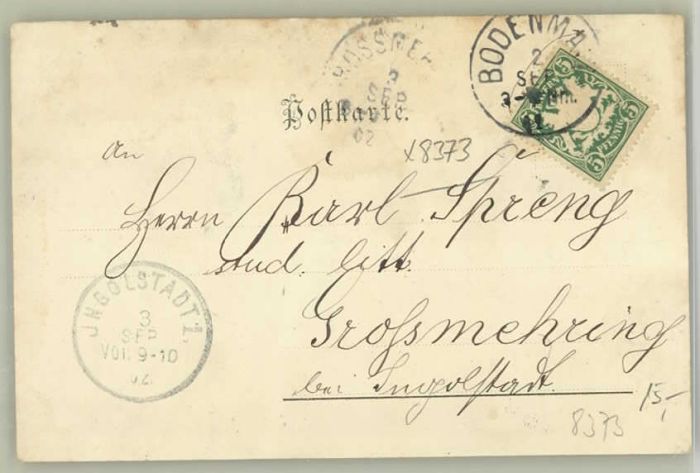 BODENMA
2
SEP
GROSSMEH
3
SEP
02
5 5
PFENNIG
5
Postkarte.
An
x8373
Herrn Karl Spreng
stud. litt.
Grossmehring
bei Ingolstadt.
INGOLSTADT 1.
3
SEP
VOR. 9-10
02.
15,-
8373